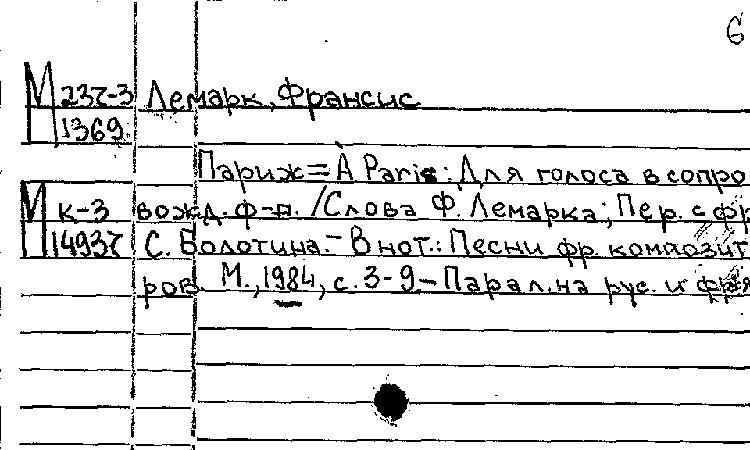 6
М 237-3 Лемарк, Франсис
1369
Париж = À Paris: Для голоса в сопро
М к-3 вожд. ф-п. / Слова Ф. Лемарка; Пер. с фр
14937 С. Болотина. - В нот.: Песни фр. композит
ров. М., 1984, с. 3-9. - Парал. на рус. и